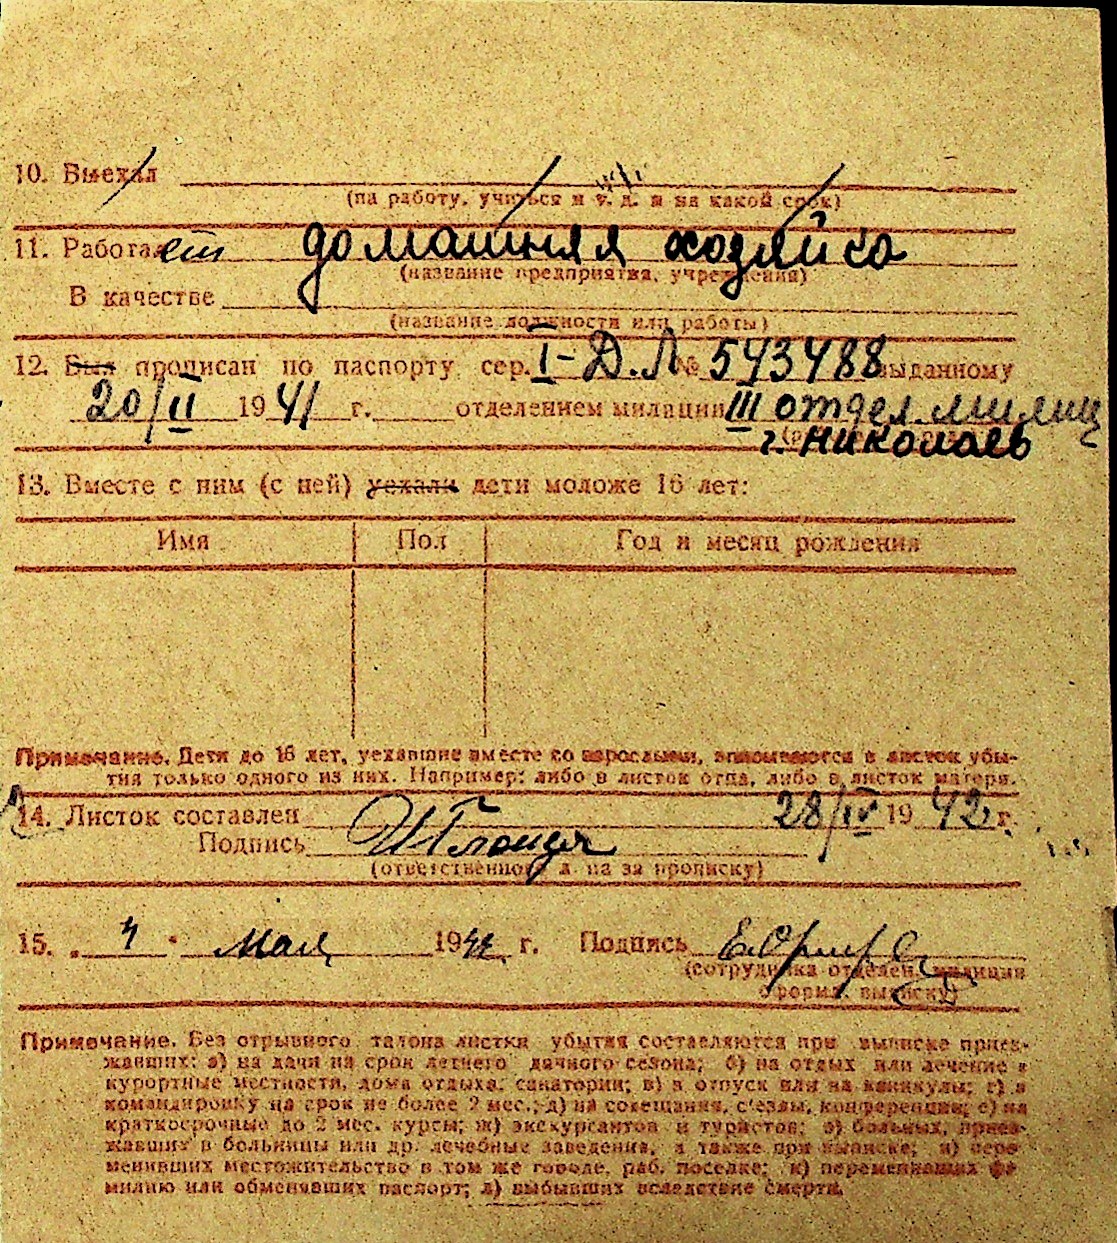 10. Выехал
(на работу, учиться и т. д. и на какой срок)
11. Работает домашняя хозяйка
(название предприятия, учреждения)
В качестве
(название должности или работы)
12. Был прописан по паспорту сер. I-Д.Л № 543488 выданному
20/II 1941 г. отделением милиции III отдел. милиц
г. Николаев
13. Вместе с ним (с ней) уехали дети моложе 16 лет:
Имя Пол Год и месяц рождения
Примечание. Дети до 16 лет, уехавшие вместе со взрослыми, вписываются в листок убы-
тия только одного из них. Например: либо в листок отца, либо в листок матери.
14. Листок составлен 28/IV 1942 г.
Подпись
(ответственного л-ца за прописку)
15. „4" мая 1942 г. Подпись
(сотрудника отделен. милиции
оформл. выписку)
Примечание. Без отрывного талона листки убытия составляются при выписке приез-
жавших: а) на дачи на срок летнего дачного сезона; б) на отдых или лечение в
курортные местности, дома отдыха, санатории; в) в отпуск или на каникулы; г) в
командировку на срок не более 2 мес.; д) на совещания, с'езды, конференции; е) на
краткосрочные до 2 мес. курсы; ж) экскурсантов и туристов; з) больных, приез-
жавших в больницы или др. лечебные заведения, а также при выписке; и) пере-
менивших местожительство в том же городе, раб. поселке; к) переменивших фа-
милию или обменявших паспорт; л) выбывших вследствие смерти.